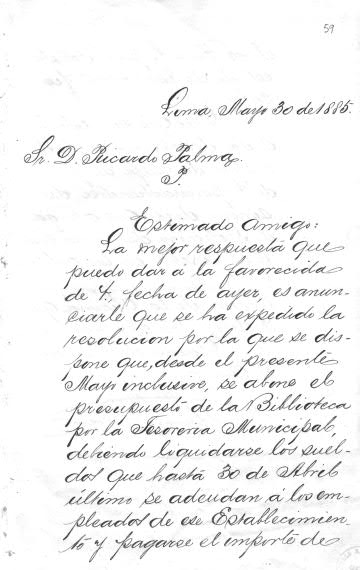 59
Lima, Mayo 30 de 1885.
Sr. D. Ricardo Palma,
P.
Estimado amigo:
La mejor respuesta que
puedo dar á la favorecida
de V. fecha de ayer, es anun-
ciarle que se ha expedido la
resolucion por la que se dis-
pone que, desde el presente
Mayo inclusive, se abone el
presupuesto de la Biblioteca
por la Tesoreria Municipal,
debiendo liquidarse los suel-
dos que hasta 30 de Abril
último se adeudan á los em-
pleados de ese Establecimien-
to y pagarse el importe de